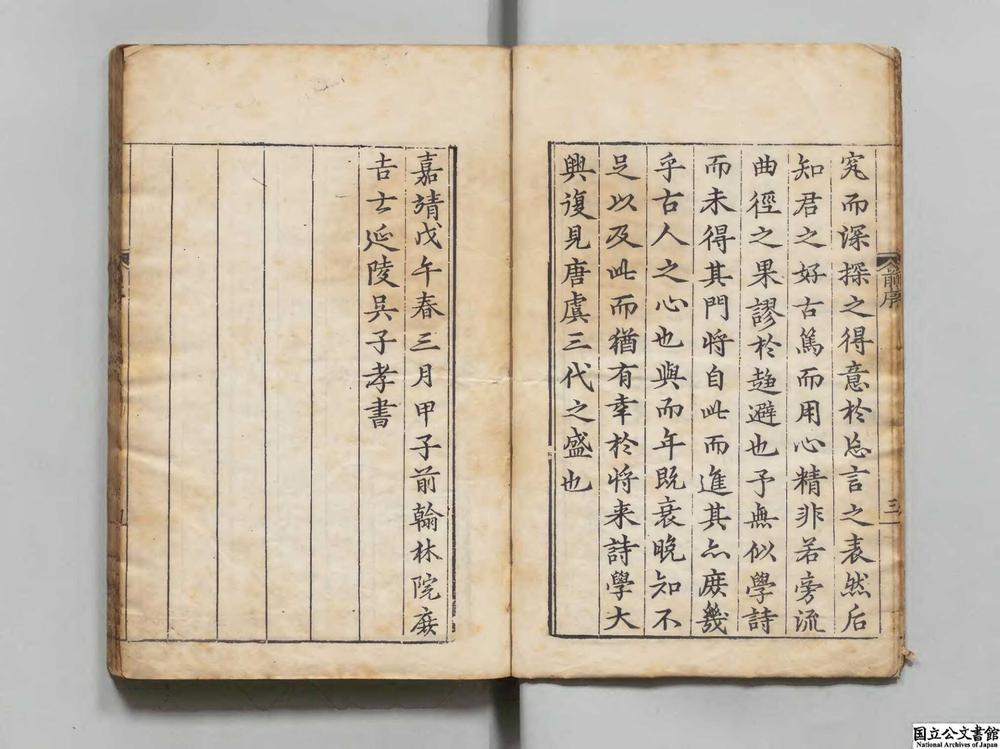 究而深探之得意於忘言之表然后
知君之好古篤而用心精非若旁流
曲徑之果謬於趋避也予無似學詩
而未得其門將自此而進其亦庶幾
乎古人之心也與而年既衰晚知不
足以及此而猶有幸於将来詩學大
興復見唐虞三代之盛也
三
嘉靖戊午春三月甲子前翰林院庶
吉士延陵吳子孝書
国立公文書館
National Archives of Japan